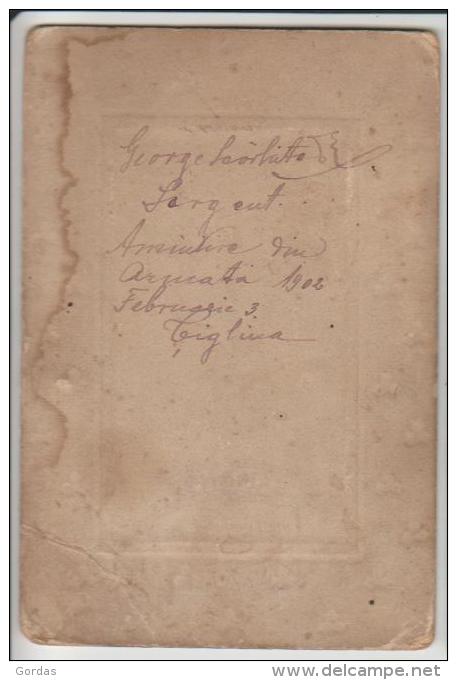 George
Sergent
Amintire din
Armata 1902
Februarie 3
Țiglina
Gordas
www.delcampe.net